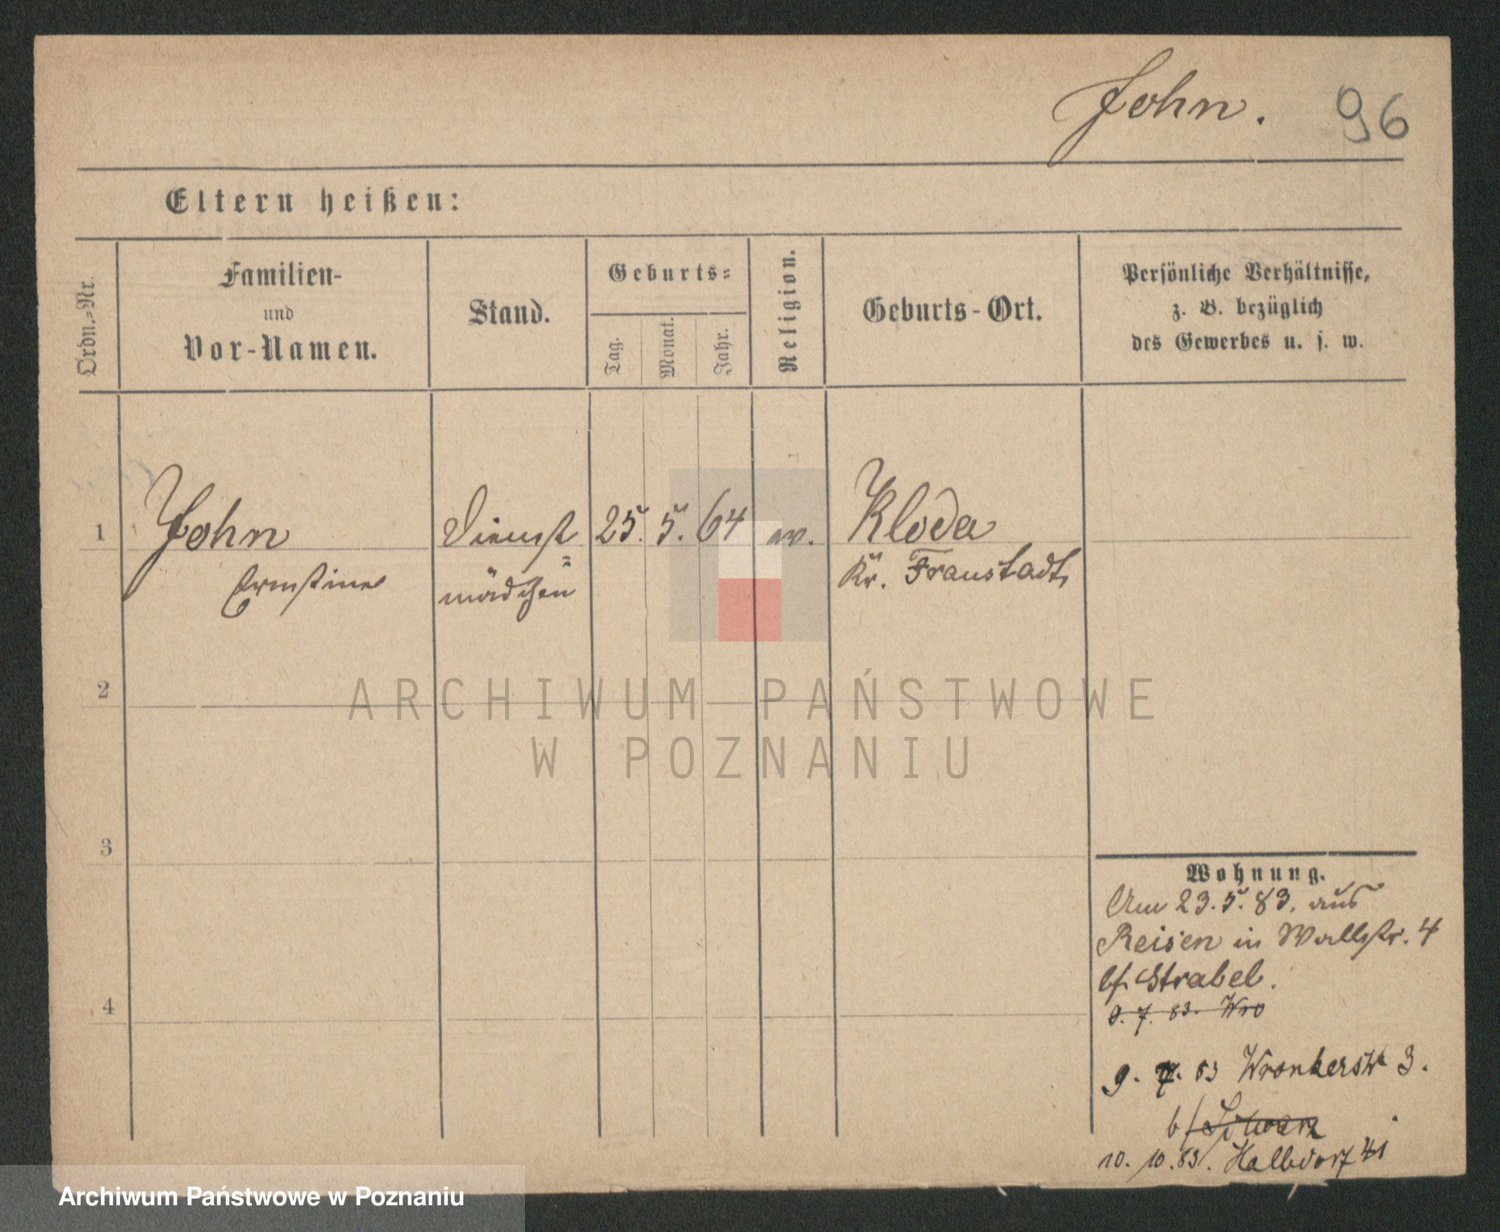 John. 96
Eltern heißen:
Ordn.-Nr.
Familien-
und
Vor-Namen.
Stand.
Geburts-
Tag.
Monat.
Jahr.
Religion.
Geburts-Ort.
Persönliche Verhältnisse,
z. B. bezüglich
des Gewerbes u. s. w.
1 John Dienst 25. 5. 64 ev. Kloda
Ernstine =mädchen Kr. Fraustadt
2
ARCHIWUM PAŃSTWOWE
W POZNANIU
3
Wohnung.
Am 23.5.83. aus
Reisen in Wallstr. 4
bf. Strabel.
9. 7. 83. Wro
4
9. 7. 83 Wronkerstr 3.
b/
10. 10. 83. Halbdorf
Archiwum Państwowe w Poznaniu